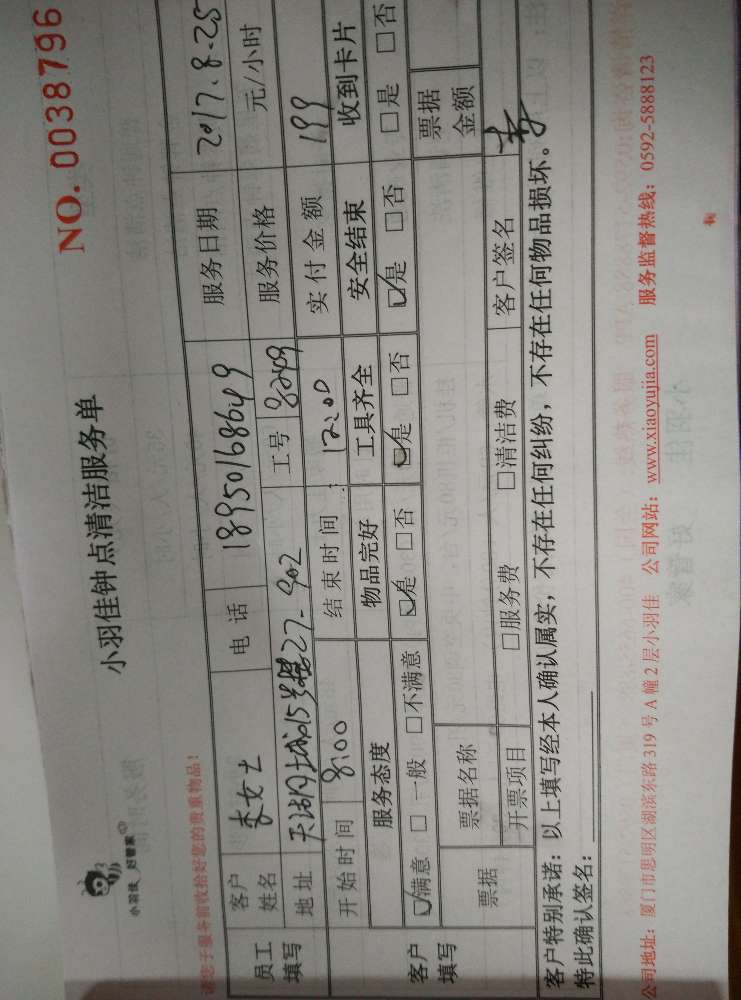 NO. 0038796
小羽佳钟点清洁服务单
小羽佳 好管家
请您于服务前收拾好您的贵重物品!
员工填写 客户姓名 李女士 电话 18950168649 服务日期 2017.8.25
地址 天湖城15号楼27-902 工号 8249 服务价格 元/小时
开始时间 8:00 结束时间: 12:00 实付金额 199
客户填写 服务态度 物品完好 工具齐全 安全结束 收到卡片
☑满意 □一般 □不满意 ☑是 □否 ☑是 □否 ☑是 □否 □是 □否
票据 票据名称 票据金额
开票项目 □服务费 □清洁费 客户签名 李
客户特别承诺:以上填写经本人确认属实,不存在任何纠纷,不存在任何物品损坏。
特此确认签名:
公司地址:厦门市思明区湖滨东路319号A幢2层小羽佳 公司网站:www.xiaoyujia.com 服务监督热线:0592-5888123